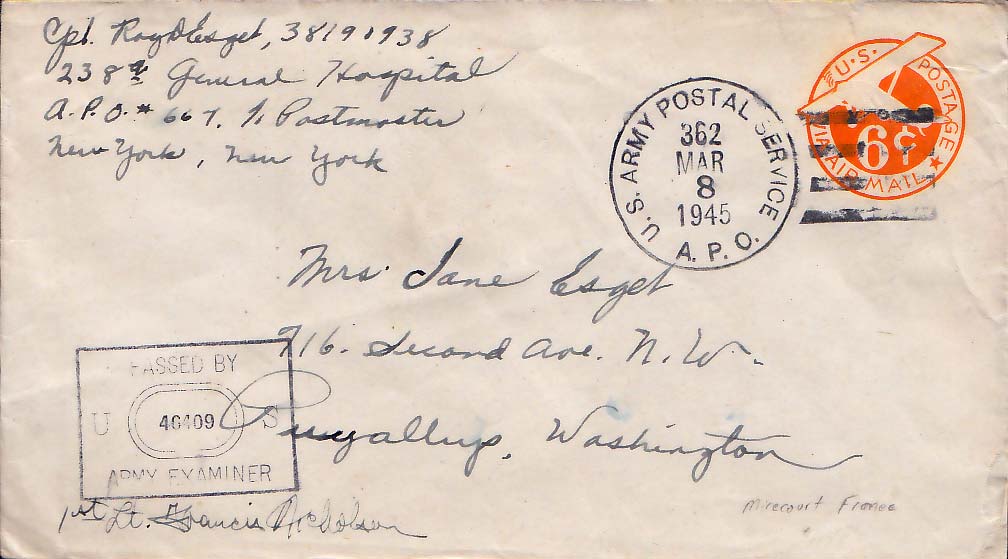 Cpl. Roy D Esget, 38191938
238th General Hospital
A.P.O. # 667, % Postmaster
New York, New York
U.S. ARMY POSTAL SERVICE
362
MAR
8
1945
A.P.O.
U.S. POSTAGE
6¢
VIA AIR MAIL
Mrs. Jane Esget
716. Second Ave. N.W.
Puyallup, Washington
PASSED BY
U 46409 S
ARMY EXAMINER
1st Lt. Francis
Mirecourt France